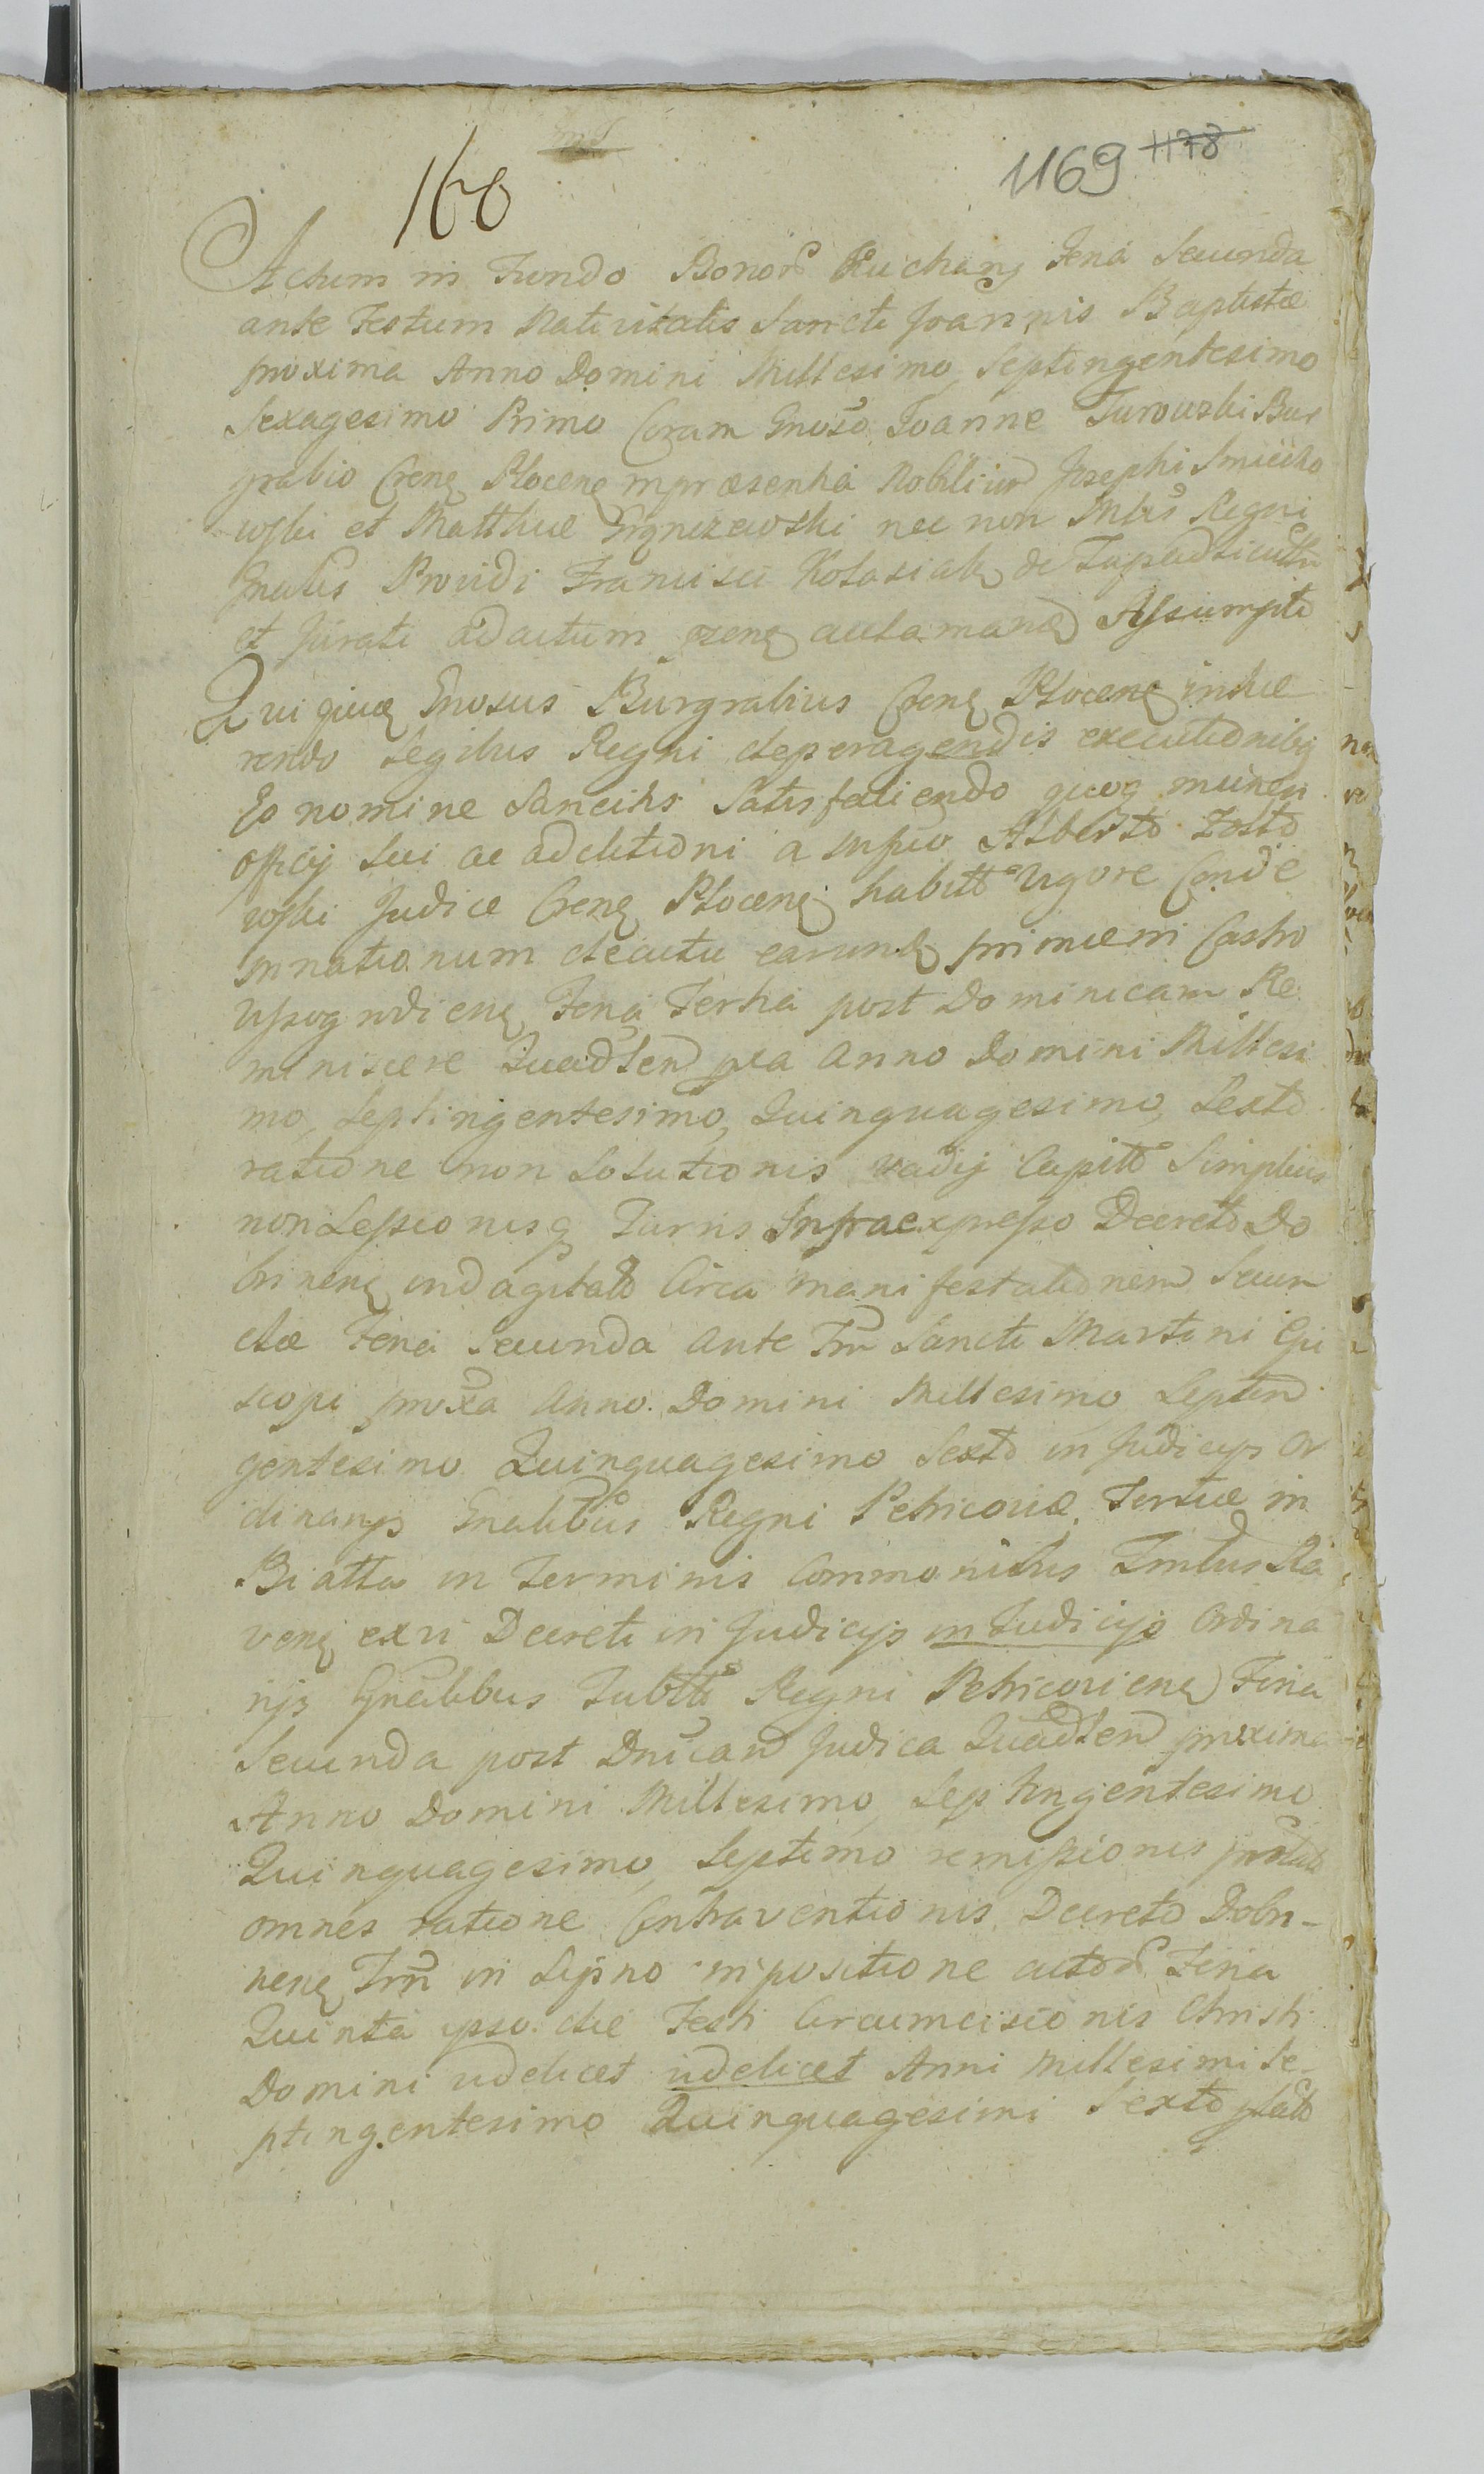 160
1169 1178
Actum in Fundo Bonor Kuchary Feria Secunda
ante Festum Nativitatis Sancti Joannis Baptistæ
proxima Anno Domini Millesimo Septingentesimo
Sexagesimo Primo Coram Gnoso Joanne Turowski Bur
grabio Crenę Plocenę inpræsentia Nobilium Josephi
wski et Matthiæ nec non Mlris Regni
Gnalis Providi Francisci Kolasiak de
et Jurati ad actum Assumpti
Qui quidę Gnosus Burgrabius Crenę Plocenę inhæ
rendo Legibus Regni deperagendis executionibq
Eo nomine Sancitis Satisfaciendo quoq muneri
officij Sui ac addictioni a Mfico Alberto Zboto
wski Judice Crenę Plocenę habitt Vigore Conde
mnationum decutu earundę primæ in Castro
Wyszogrodienę Feria Tertia post Dominicam Re
miniscere Quadlem pxa Anno Domini Millesi
mo, Septingentesimo, Quinquagesimo, Sexto
ratione non Solutionis vadij Capitt Simplicis
non Sessionisq Turris Infraexpresso Decreto Do
brinenę indagitato Circa manifestationem Secun
dæ Feria Secunda ante Fm Sancti Martini Epi
scopi proxa Anno Domini Millesimo Septin
gentesimo Quinquagesimo Sexto in Judicijs Or
dinarijs Gnalibus Regni Petricoviæ, Tertiæ in
Biatta in Terminis Commonibus Tmlus Ra
venę ex vi Decreti in Judicijs in Judicijs Ordina
rijs Gnalibus Tubttę Regni Petricovienę Feria
Secunda post Dnicam Judica Quadlem proxima
Anno Domini Millesimo Septingentesimo
Quinquagesimo, Septimo remissionis
omnes ratione Contraventionis Decreto Dobri-
nenę Tm in Lipno inpositione actor Feria
Quinta ipso die Festi Circumcisionis Christi
Domini videlicet videlicet Anni Millesimi Se
ptingentesimo Quinquagesimi Sexto